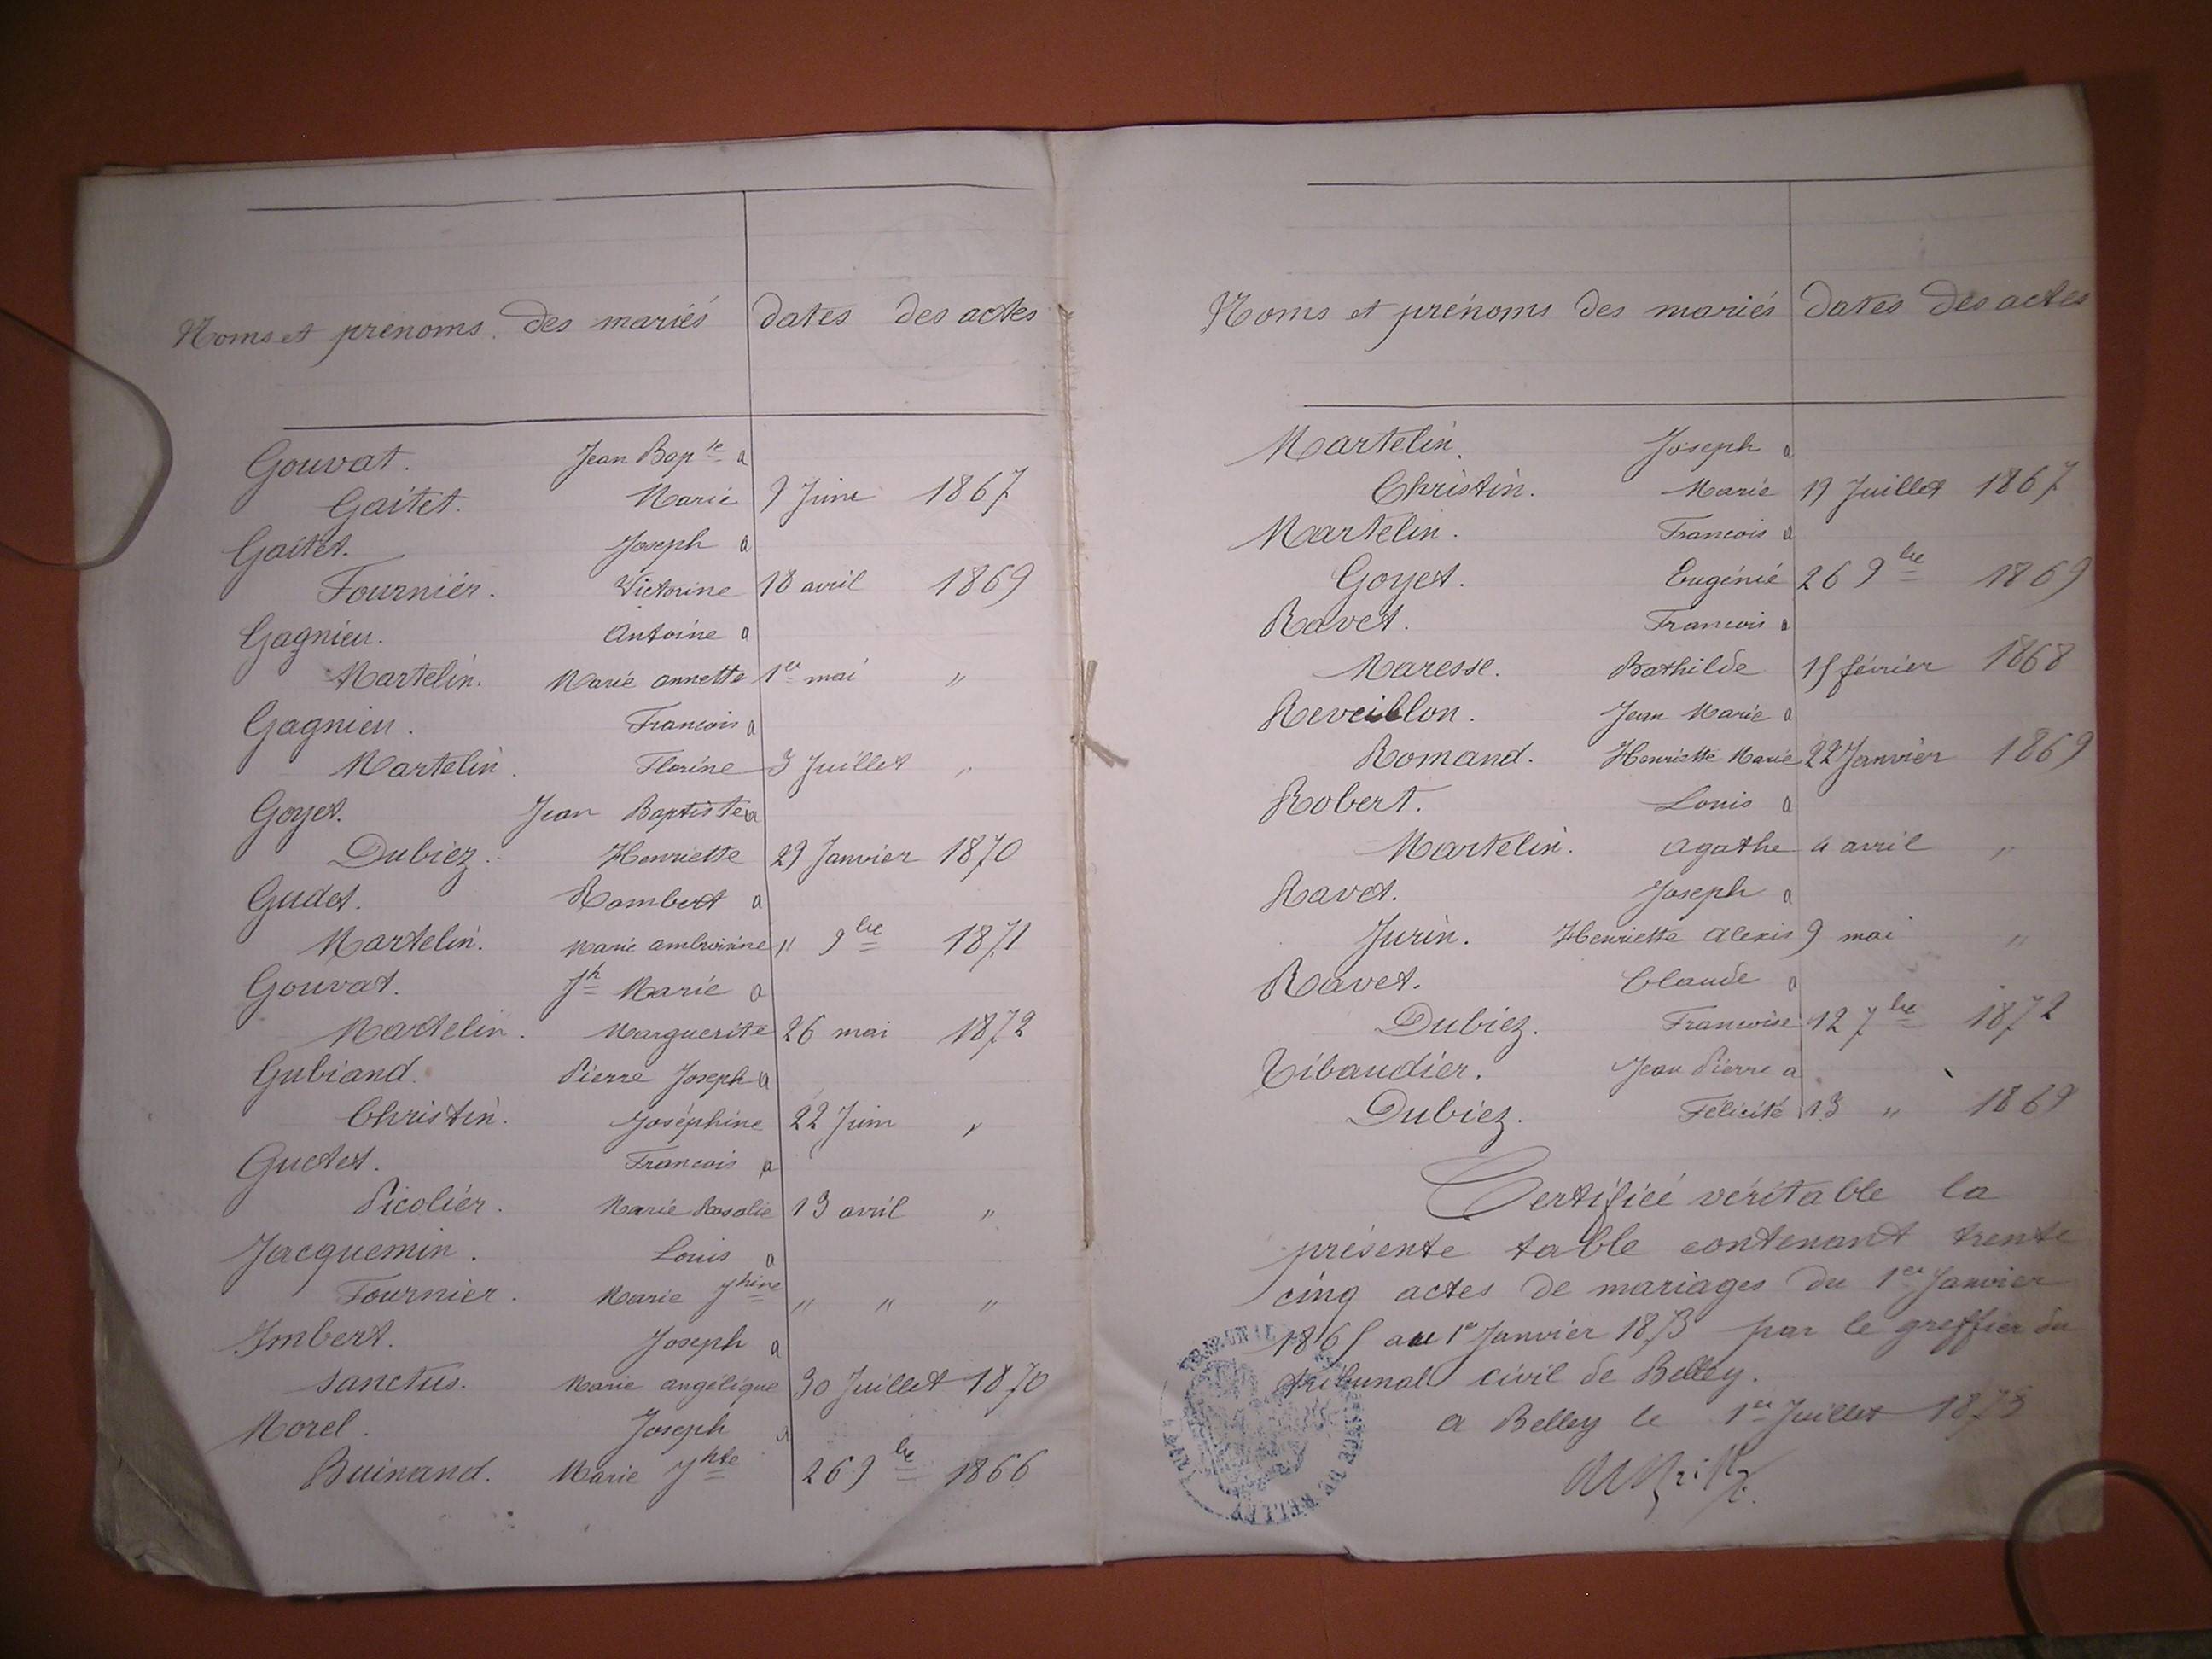 Noms et prenoms des mariés dates des actes
Gouvat. Jean Bapte a
Gaitet. Marie 9 Juin 1867
Gaitet. Joseph a
Fournier. Victorine 18 avril 1869
Gagnieu. Antoine a
Martelin. Marie annette 1er mai "
Gagnieu. Francois a
Martelin. Florine 3 Juillet "
Goyet. Jean Baptiste a
Dubiez. Henriette 29 Janvier 1870
Gudet. Rambert a
Martelin. Marie ambroisine " 9bre 1871
Gouvat. Jh Marie a
Martelin. Marguerite 26 mai 1872
Gubiand. Pierre Joseph a
Christin. Joséphine 22 Juin "
Guctet. Francois a
Picolier. Marie Rosalie 13 avril "
Jacquemin. Louis a
Fournier. Marie Jhine " " "
Imbert. Joseph a
Sanctus. Marie angélique 30 Juillet 1870
Morel. Joseph a
Buinand. Marie Jhte 26 9bre 1866
Noms et prénoms des mariés dates des actes
Martelin. Joseph a
Christin. Marie 19 Juillet 1867
Martelin. Francois a
Goyet. Eugénie 26 9bre 1869
Ravet. Francois a
Maresse. Bathilde 15 février 1868
Reveillon. Jean Marie a
Romand. Henriette Marie 22 Janvier 1869
Robert. Louis a
Martelin. Agathe 4 avril "
Ravet. Joseph a
Jurin. Henriette Alexis 9 mai "
Ravet. Claude a
Dubiez. Francoise 12 7bre 1872
Tibaudier. Jean Pierre a
Dubiez. Félicité 13 " 1869
Certifiée véritable la
présente table contenant trente
cinq actes de mariages du 1er Janvier
1865 au 1er Janvier 1873 par le greffier du
tribunal civil de Belley.
a Belley le 1er Juillet 1873